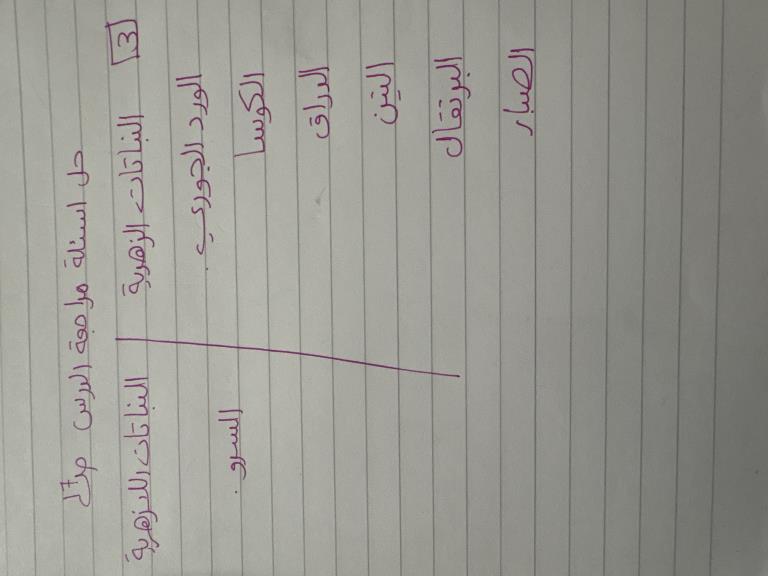 حل اسئلة مراجعة الدرس ص٦٢
3 النباتات الزهرية النباتات اللازهرية
الورد الجوري. السرو.
الكوسا
الدراق
التين
البرتقال
الصبار